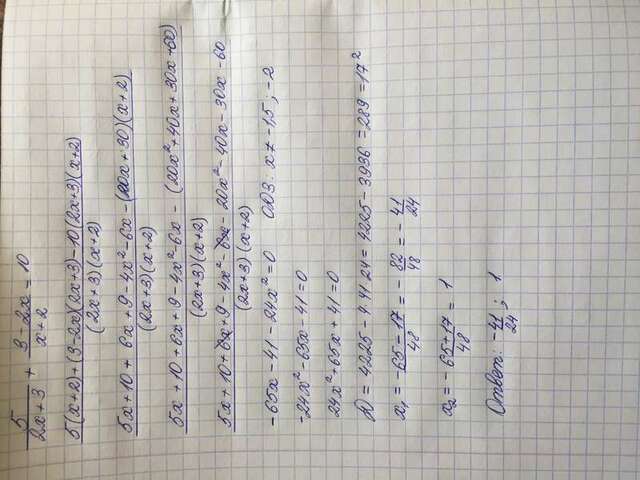 5/(2x+3) + (3-2x)/(x+2) = 10
(5(x+2)+(3-2x)(2x+3)-10(2x+3)(x+2))/((2x+3)(x+2))
(5x+10+6x+9-4x²-6x-(20x+30)(x+2))/((2x+3)(x+2))
(5x+10+6x+9-4x²-6x-(20x²+40x+30x+60))/((2x+3)(x+2))
(5x+10+6x+9-4x²-6x-20x²-40x-30x-60)/((2x+3)(x+2))
-65x-41-24x²=0 ОДЗ: x≠-1,5; -2
-24x²-65x-41=0
24x²+65x+41=0
D = 4225-4·41·24 = 4225-3936 = 289 = 17²
x₁ = (-65-17)/48 = -82/48 = -41/24
x₂ = (-65+17)/48 = 1
Ответ: -41/24; 1